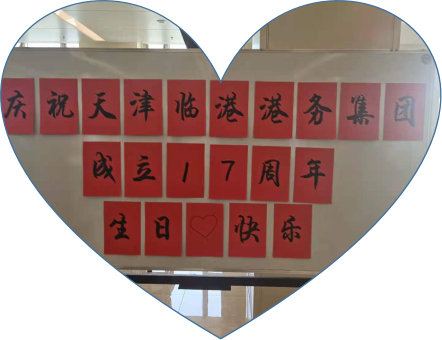 庆祝天津临港港务集团
成立17周年
生日♡快乐